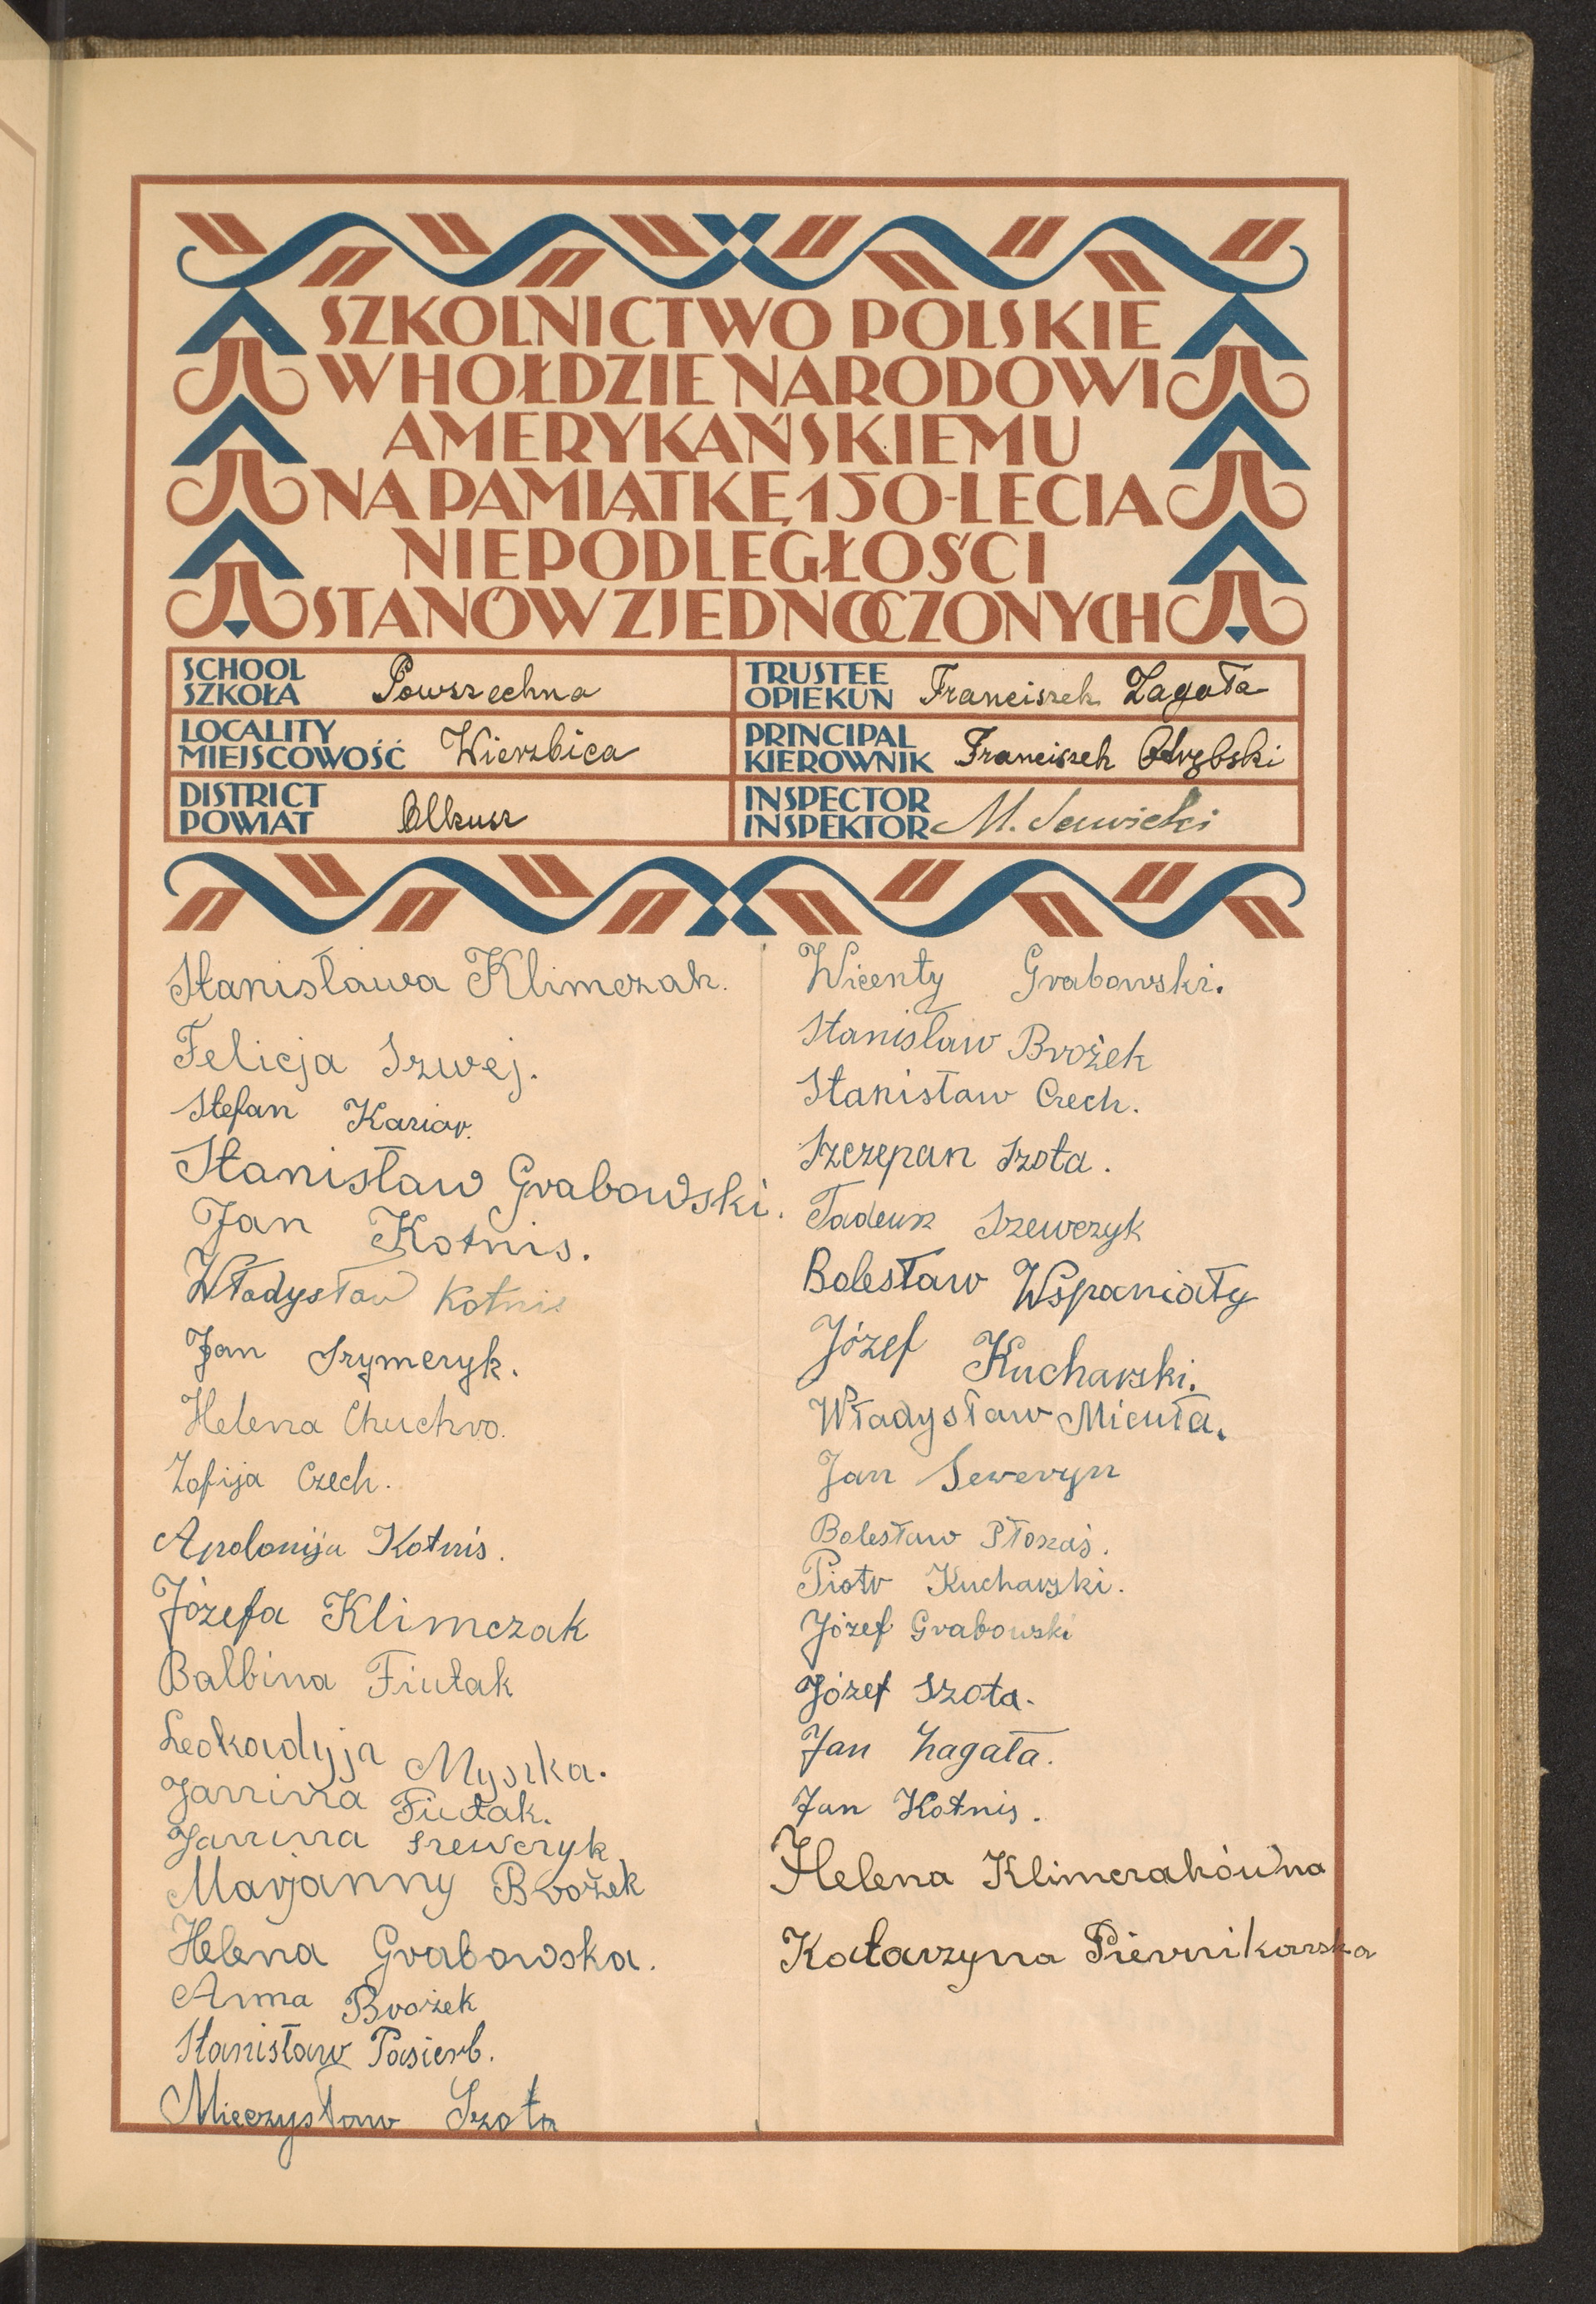 SZKOLNICTWO POLSKIE
W HOŁDZIE NARODOWI
AMERYKAŃSKIEMU
NA PAMIĄTKĘ 150-LECIA
NIEPODLEGŁOŚCI
STANÓW ZJEDNOCZONYCH
SCHOOL
SZKOŁA Powszechna
TRUSTEE
OPIEKUN Franciszek Zagoła
LOCALITY
MIEJSCOWOŚĆ Wierzbica
PRINCIPAL
KIEROWNIK Franciszek
DISTRICT
POWIAT Olkusz
INSPECTOR
INSPEKTOR M. Sawicki
Stanisława Klimczak.
Felicja Szwej.
Stefan Kazior.
Stanisław Grabowski.
Jan Kotnis.
Władysław Kotnis
Jan Szymczyk.
Helena Chuchro.
Zofija Czech.
Apolonija Kotnis.
Józefa Klimczak
Balbina Fiutak
Leokadyja Myszka.
Janina Fiutak.
Janina Szewczyk.
Marjanny Brożek
Helena Grabowska.
Anna Brożek
Stanisław Pasierb.
Mieczysław Szota
Wicenty Grabowski.
Stanisław Brożek
Stanisław Czech.
Szczepan Szota.
Tadeusz Szewczyk
Bolesław Wspaniały
Józef Kucharski.
Władysław Micuła.
Jan Seweryn
Bolesław Płonaś.
Piotr Kucharski.
Józef Grabowski
Józef Szota.
Jan Zagała.
Jan Kotnis.
Helena Klimczakówna
Katarzyna Piernikarska